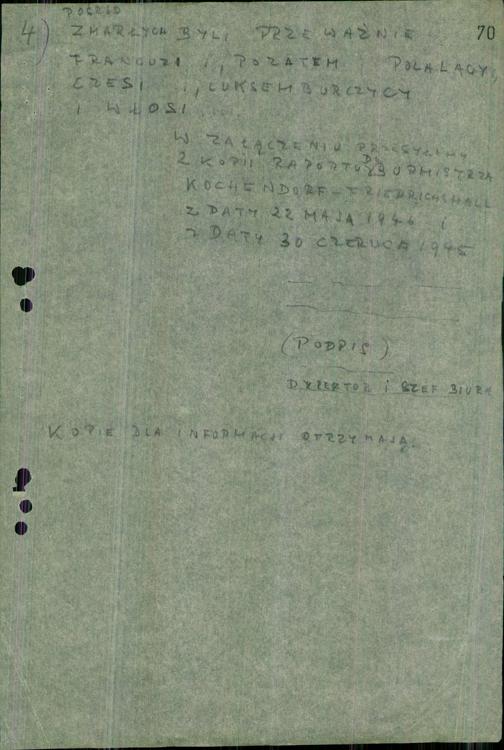 POŚRÓD
4) ZMARŁYCH BYLI PRZEWAŻNIE 70
FRANCUZI i, POZATEM POLALACY,
CZESI i, LUKSEMBURCZYCY
i WŁOSI
W ZAŁĄCZENIU PRZESYŁAMY
2 KOPII RAPORTU DO BURMISTRZA
KOCHENDORF-FRIEDRICHSHALL
z DATY 22 MAJA 1946 i
z DATY 30 CZERWCA 1945
(PODPIS)
DYREKTOR i SZEF BIURA
KOPIE DLA INFORMACJI OTRZYMAJĄ: